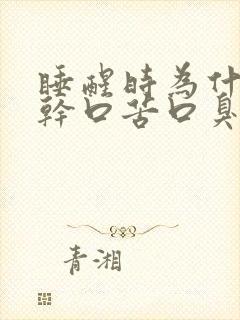 睡醒時為什
幹口苦口臭
青湘